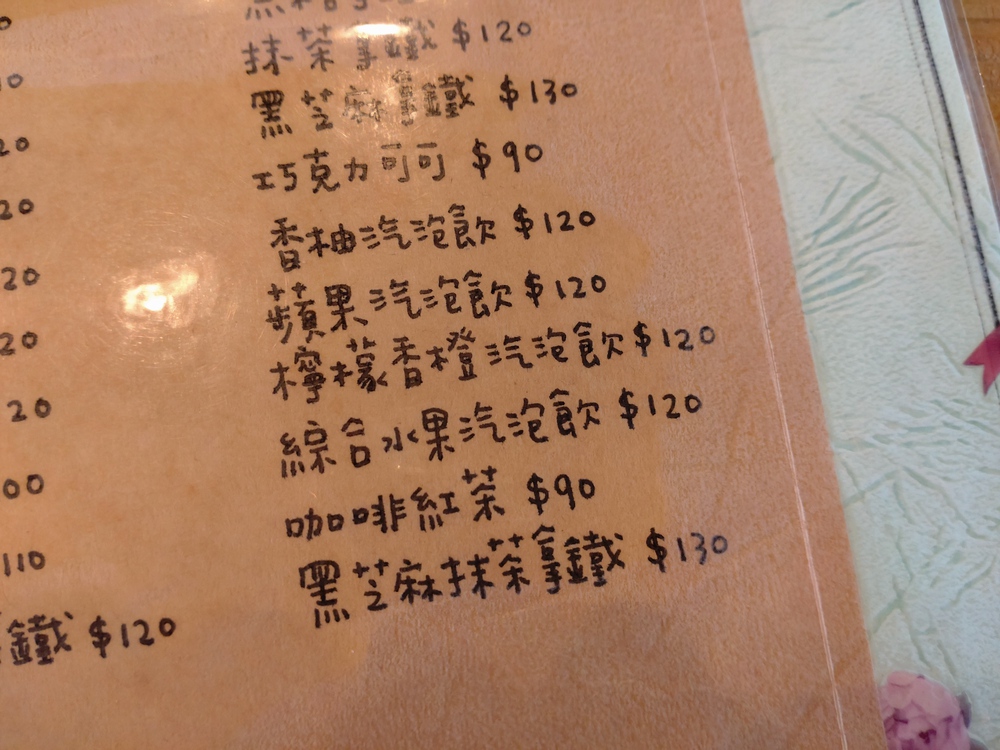 抹茶拿鐵 $120
黑芝麻拿鐵 $130
巧克力可可 $90
香柚汽泡飲 $120
蘋果汽泡飲 $120
檸檬香橙汽泡飲 $120
綜合水果汽泡飲 $120
咖啡紅茶 $90
黑芝麻抹茶拿鐵 $130
20
20
20
20
20
00
110
鐵 $120